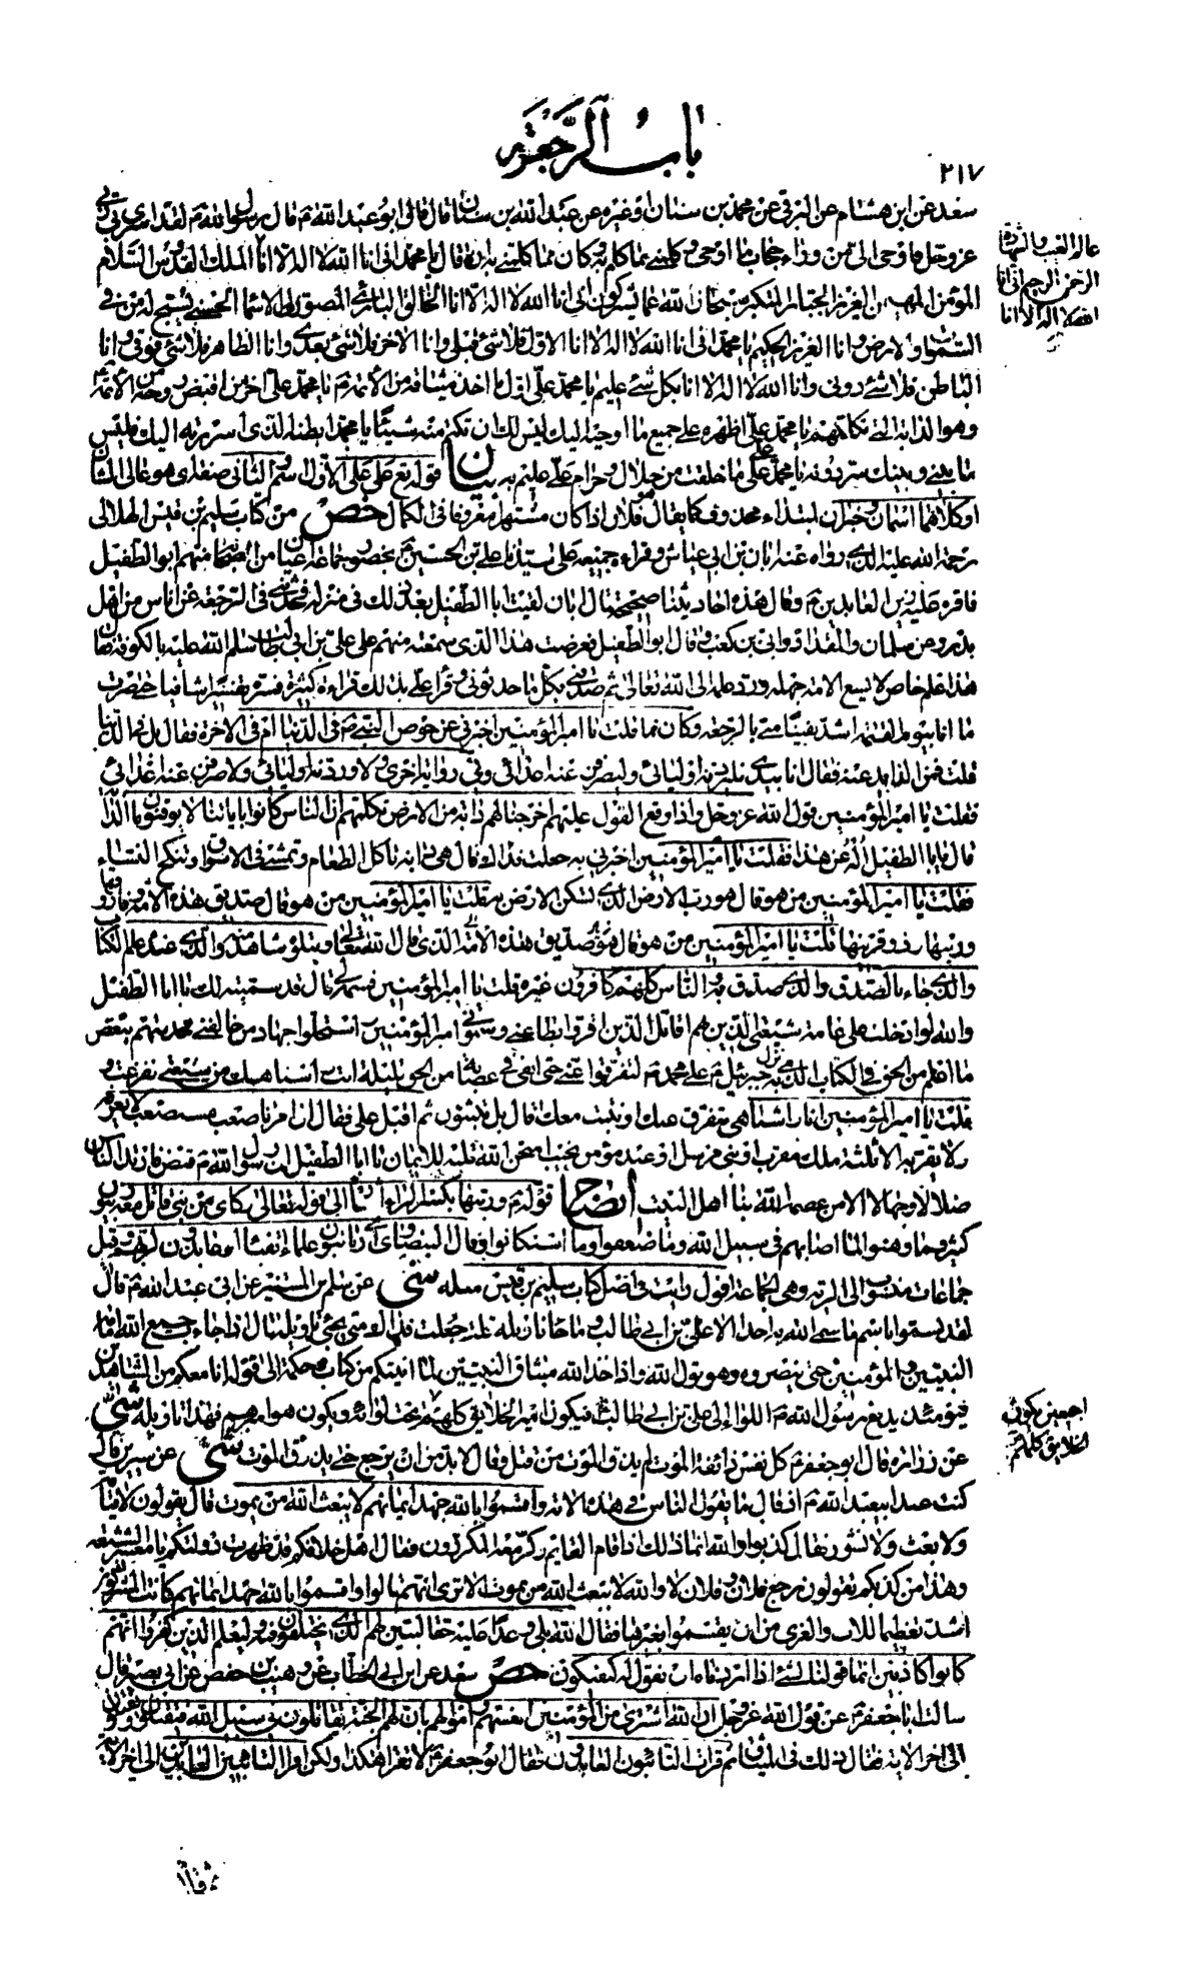 باب الرجعة
٢١٧
سعد عن ابن هشام عن البرقي عن محمد بن سنان او غيره عن عبد الله بن سنان قال قال ابو عبد الله ع قال رسول الله ص لقد اسرى بي ربي
عز وجل فاوحى الي من وراء حجاب ما اوحى وكلمني بما كلم به وكان مما كلمني به ان قال يا محمد اني انا الله لا اله الا انا الملك القدوس السلام
عالم الغيب والشهادة
الرحمن الرحيم اني انا
الله لا اله الا انا
المؤمن المهيمن العزيز الجبار المتكبر سبحان الله عما يشركون اني انا الله لا اله الا انا الخالق البارئ المصور لي الاسماء الحسنى يسبح لي من في
السموات والارض وانا العزيز الحكيم يا محمد اني انا الله لا اله الا انا الاول فلا شئ قبلي وانا الاخر فلا شئ بعدي وانا الظاهر فلا شئ فوقي وانا
الباطن فلا شئ دوني وانا الله لا اله الا انا بكل شئ عليم يا محمد علي اول ما اخذ ميثاقه من الأئمة يا محمد علي اخر من اقبض روحه من الأئمة
وهو الدابة التي تكلمهم يا محمد علي اظهره على جميع ما اوحيه اليك ليس لك ان تكتم منه شيئا يا محمد ابطنه الذي اسررته اليك فليس
ما بيني وبينك سر دونه يا محمد علي علي ما خلقت من حلال وحرام علي عليم به بيان قوله تع علي علي الاول اسم والثاني صفة اي هو عالي الشان
او كلاهما اسمان وخبران لمبتداء محذوف كما يقال فلان اذا كان مشتهرا معروفا في الكمال خص من كتاب سليم بن قيس الهلالي
رحمة الله عليه الذي رواه عنه ابان بن ابي عياش وقراء جميعه على سيدنا علي بن الحسين ع بحضور جماعة اعيان من الصحابة منهم ابو الطفيل
فاقره عليه زين العابدين ع وقال هذه احاديثنا صحيحة قال ابان لقيت ابا الطفيل بعد ذلك في منزله فحدثني في الرجعة عن اناس من اهل
بدر وعن سلمان والمقداد وابي بن كعب وقال ابو الطفيل فعرضت هذا الذي سمعته منهم على علي بن ابي طالب سلام الله عليه بالكوفة فقال
هذا علم خاص لا يسع الامة جهله ورد علمه الى الله تعالى ثم صدقني بكل ما حدثوني وقرأ علي بذلك قراءة كثيرة فسره تفسيرا شافيا حتى صرت
ما انا بيوم القيمة اشد يقينا مني بالرجعة وكان مما قلت يا امير المؤمنين اخبرني عن حوض النبي ص في الدنيا ام في الاخرة فقال بل في الدنيا
قلت فمن الذائد عنه فقال انا بيدي فليردنه اوليائي وليصرفن عنه اعدائي وفي رواية اخرى لاوردنه اوليائي ولاصرفن عنه اعدائي
فقلت يا امير المؤمنين قول الله عز وجل واذا وقع القول عليهم اخرجنا لهم دابة من الارض تكلمهم ان الناس كانوا باياتنا لا يوقنون ما الدابة
قال يا ابا الطفيل اله عن هذا فقلت يا امير المؤمنين اخبرني به جعلت فداك قال هي دابة تاكل الطعام وتمشي في الاسواق وتنكح النساء
فقلت يا امير المؤمنين من هو قال هو رب الارض الذي تسكن الارض به قلت يا امير المؤمنين من هو قال صديق هذه الامة وفاروقها
وربيها وذو قرنيها قلت يا امير المؤمنين من هو قال هو صديق هذه الامة الذي قال الله تعالى ويتلوه شاهد منه والذي عنده علم الكتاب
والذي جاء بالصدق والذي صدق به والناس كلهم كافرون غيره قلت يا امير المؤمنين فسمه لي قال قد سميته لك يا ابا الطفيل
والله لو ادخلت على عامة شيعتي الذين بهم اقاتل الذين اقروا بطاعتي وسموني امير المؤمنين استحلوا جهاد من خالفني فحدثتهم ببعض
ما اعلم من الحق في الكتاب الذي نزل به جبرئيل ع على محمد ص لتفرقوا عني حتى ابقى في عصابة من الحق قليلة انت واشباهك من شيعتي ففزعت و
قلت يا امير المؤمنين انا واشباهي نتفرق عنك او نثبت معك قال بل تثبتون ثم اقبل علي فقال ان امرنا صعب مستصعب لا يعرفه
ولا يقربه الا ثلثة ملك مقرب او نبي مرسل او عبد مؤمن نجيب امتحن الله قلبه للايمان يا ابا الطفيل ان رسول الله ص قبض فارتد الناس
ضلالا وجهالا الا من عصمه الله بنا اهل البيت ايضاح قوله ع وربيها بكسر الراء
كثير فما وهنوا لما اصابهم في سبيل الله وما ضعفوا وما استكانوا وقال البيضاوي
جماعات منسوب الى الربة وهي الجماعة اقول رايت في اصل كتاب سليم بن قيس مثله شى عن سلام بن المستنير عن ابي عبد الله ع قال
لقد تسموا باسم ما سمى الله به احدا الا علي بن ابي طالب وما جاء تاويله قلت جعلت فداك متى يجئ تاويله قال اذا جاء جمع الله امامه
النبيين والمؤمنين حتى ينصروه وهو قول الله واذ اخذ الله ميثاق النبيين لما اتيتكم من كتاب وحكمة الى قوله انا معكم من الشاهدين
فيومئذ يدفع رسول الله ص اللواء الى علي بن ابي طالب فيكون امير الخلايق كلهم تحت لوائه ويكون هو اميرهم فهذا تاويله شى
اجمعين يكون
الخلايق كلهم
عن زرارة قال ابو جعفر ع كل نفس ذائقة الموت لم يذق الموت من قتل وقال لا بد من ان يرجع حتى يذوق الموت شى عن سيرين قال
كنت عند ابي عبد الله ع اذ قال ما يقول الناس في هذه الاية واقسموا بالله جهد ايمانهم لا يبعث الله من يموت قال يقولون لا قيامة
ولا بعث ولا نشور فقال كذبوا والله انما ذلك اذا قام القائم وكر معه المكرون فقال اهل خلافكم قد ظهرت دولتكم يا معشر الشيعة
وهذا من كذبكم تقولون رجع فلان وفلان لا والله لا يبعث الله من يموت الا ترى انهم قالوا واقسموا بالله جهد ايمانهم كانت المشركون
اشد تعظيما للات والعزى من ان يقسموا بغيرها فقال الله بلى وعدا عليه حقا ليبين لهم الذي يختلفون فيه وليعلم الذين كفروا انهم
كانوا كاذبين انما قولنا لشئ اذا اردناه ان نقول له كن فيكون خص سعد عن ابن ابي الخطاب عن وهيب بن حفص عن ابي بصير قال
سالت ابا جعفر ع عن قول الله عز وجل ان الله اشترى من المؤمنين انفسهم واموالهم بان لهم الجنة يقاتلون في سبيل الله فيقتلون ويقتلون
الى اخر الاية فقال ذلك في الميثاق ثم قرات التائبون العابدون فقال ابو جعفر ع لا تقرا هكذا ولكن اقرا التائبين العابدين الى اخر الاية
ثم قال